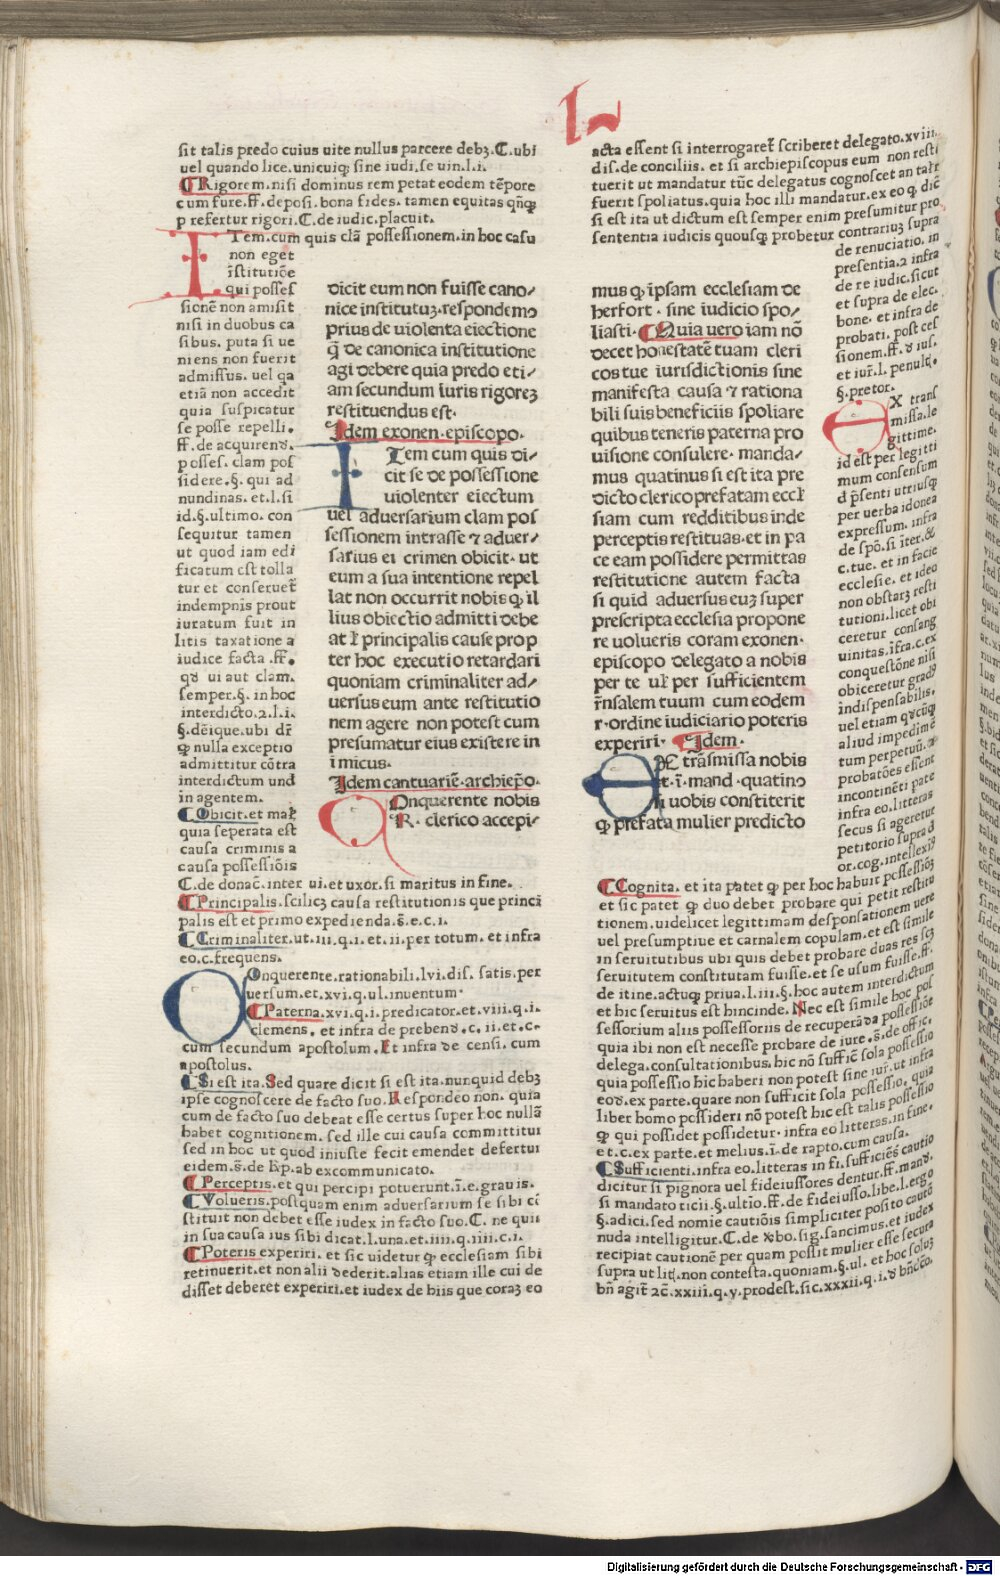 L
sit talis predo cuius uite nullus parcere debꝫ.C.ubi
uel quando lice.unicuiqꝫ sine iudi.se uin.l.i.
¶Rigorem.nisi dominus rem petat eodem tēpore
cum fure.ff.deposi.bona fides. tamen equitas
p refertur rigori.C.de iudic.placuit.
Item.cum quis clā possessionem.in hoc casu
non eget
īstitutiōe
qui posses
sionē non amisit
nisi in duobus ca
sibus. puta si ue
niens non fuerit
admissus. uel qa
etiā non accedit
quia suspicatur
se posse repelli.
ff.de acquirend.
posses. clam pos
sidere.§. qui ad
nundinas. et.l.si
id.§.ultimo. con
sequitur tamen
ut quod iam edi
ficatum est tolla
tur et conseruet
indempnis prout
iuratum fuit in
litis taxatione a
iudice facta .ff.
qd ui aut clam.
semper.§. in hoc
interdicto.2.l.i.
§.dēique.ubi dr̄
ꝙ nulla exceptio
admittitur cōtra
interdictum und
in agentem.
¶Obicit.et
quia seperata est
causa criminis a
causa possessiōis
C.de donac̄.inter ui.et uxor.si maritus in fine.
¶Principalis.scilicꝫ causa restitutionis que princi
palis est et primo expedienda.s̄.e.c.i.
¶Criminaliter.ut.iii.q.i.et.ii.per totum. et infra
eo.c.frequens.
Conquerente.rationabili.lvi.dis. satis.per
uersum.et.xvi.q.ul.inuentum.
¶Paterna.xvi.q.i.predicator.et.viii.q.i.
clemens. et infra de prebend.c.ii.et.c.
cum secundum apostolum.Et infra de censi. cum
apostolus.
¶Si est ita.Sed quare dicit si est ita.nunquid debꝫ
ipse cognoscere de facto suo.Respondeo non. quia
cum de facto suo debeat esse certus super hoc nullā
habet cognitionem. sed ille cui causa committitur
sed in hoc ut quod iniuste fecit emendet defertur
eidem.s̄.de ab excommunicato.
¶Perceptis.et qui percipi potuerunt.ī.e.grauis.
¶Volueris.postquam enim aduersarium se sibi cō
stituit non debet esse iudex in facto suo.C. ne quis
in sua causa ius sibi dicat.l.una.et.iiii.q.iiii.c.i.
¶Poteris experiri. et sic uidetur ꝙ ecclesiam sibi
retinuerit.et non alii dederit.alias etiam ille cui de
disset deberet experiri.et iudex de hiis que coraꝫ eo
dicit eum non fuisse cano/
nice institutuꝫ.respondemꝰ
prius de uiolenta eiectione
q̄ de canonica institutione
agi debere quia predo eti/
am secundum iuris rigoreꝫ
restituendus est.
Idem exonen.episcopo.
Item cum quis di/
cit se de possessione
uiolenter eiectum
uel aduersarium clam pos
sessionem intrasse ⁊ aduer/
sarius ei crimen obicit. ut
eum a sua intentione repel
lat non occurrit nobis ꝙ il
lius obiectio admitti debe
at principalis cause prop
ter hoc executio retardari
quoniam criminaliter ad/
uersus eum ante restitutio
nem agere non potest cum
presumatur eius existere in
imicus.
Idem cantuariē.archiepo.
Conquerente nobis
R. clerico accepi/
acta essent si interrogaret scriberet delegato.xviii.
dis.de conciliis. et si archiepiscopus eum non resti
tuerit ut mandatur tūc delegatus cognoscet an
fuerit spoliatus.quia hoc illi mandatur.ex eo ꝙ dic̄
si est ita ut dictum est semper enim presumitur pro
sententia iudicis quousqꝫ probetur contrariuꝫ supra
de renuciatio. in
presentia.2 infra
de re iudic.sicut
et supra de elec.
bone. et infra de
probati. post ces
sionem.ff. d ius.
et iur.l. penult.
§.pretor.
mus ꝙ ipsam ecclesiam de
herfort . sine iudicio spo/
liasti. ¶Quia uero iam nō
decet honestatē tuam cleri
cos tue iurisdictionis sine
manifesta causa ⁊ rationa
bili suis beneficiis spoliare
quibus teneris paterna pro
uisione consulere. manda/
mus quatinus si est ita pre
dicto clerico prefatam eccl
siam cum redditibus inde
perceptis restituas.et in pa
ce eam possidere permittas
restitutione autem facta
si quid aduersus euꝫ super
prescripta ecclesia propone
re uolueris coram exonen.
episcopo delegato a nobis
per te per sufficientem
r̄nsalem tuum cum eodem
r.ordine iudiciario poteris
experiri. ¶Idem.
EX trāsmissa nobis
et.ī.mand.quatinꝰ
si uobis constiterit
ꝙ prefata mulier predicto
EX trans
missa.le
gittime.
id est per legitti
mum consensum
d p̄senti utriusqꝫ
per uerba idonea
expressum. infra
de spō.si iter.&
c.tue. et in facie
ecclesie. et ideo
non obstarꝫ resti
tutioni.licet obi
ceretur consang
uinitas.īfra.c.ex
conquestōne nisi
obiceretur gradꝰ
indispensabilis.
uel etiam
aliud impedimē
tum perpetuū.
probatōes essent
incontinēti pate
infra eo.litteras
secus si ageretur
petitorio supra d
or.cog.intellexiꝰ
¶Cognita. et ita patet ꝙ per hoc habuit possessiōꝫ
et sic patet ꝙ duo debet probare qui petit restitu
tionem.uidelicet legittimam desponsationem uere
uel presumptiue et carnalem copulam.et est simile
in seruitutibus ubi quis debet probare duas res scꝫ
seruitutem constitutam fuisse.et se usum fuisse.ff.
de itine.actuqꝫ priua.l.iii.§.hoc autem interdictum
et hic seruitus est hincinde. Nec est simile hoc pos
sessorium aliis possessoriis de recuperāda possessiōe
quia ibi non est necesse probare de iure.s̄.de offic.
delega.consultationibus.hic nō suffic̄ sola possessio
quia possessio hic haberi non potest sine iur.ut infra
eod.ex parte.quare non sufficit sola possessio. quia
liber homo possideri nō potest hic est talis possessio
ꝙ qui possidet possidetur. infra eo litteras.in fine.
et.c.ex parte.et melius.ī.de rapto.cum causa.
¶Sufficienti.infra eo.litteras in fi.sufficiēs cautio
dicitur si pignora uel fideiussores dentur.ff.mand.
si mandato ticii.§.ultio.ff.de fideiusso.libe.l.ergo
§.adici.sed nomie cautiōis simpliciter posito cautō
nuda intelligitur.C.de ꝟbo.sig.sancimus.et iudex
recipiat cautionē per quam possit mulier esse secura
supra ut lit.non contesta.quoniam.§.ul.et hoc soluꝫ
bn̄ agit 2c̄.xxiii.q.v.prodest.sic.xxxii.q.i.d bn̄cc̄o.
Digitalisierung gefördert durch die Deutsche Forschungsgemeinschaft - DFG